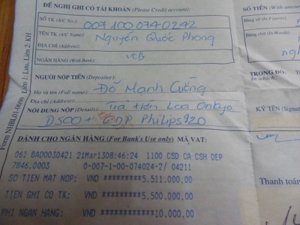 ĐỀ NGHỊ GHI CÓ TÀI KHOẢN (Please Credit account)
SỐ TIỀN
SỐ TK (A/C No.) 0071000740242
TÊN TK (A/C Name) Nguyễn Quốc Phong
ĐỊA CHỈ (Address)
NGÂN HÀNG (With Bank) VCB
NGƯỜI NỘP TIỀN (Depositor)
Họ và tên (Full name) Đỗ Mạnh Cường
Địa chỉ (Address)
NỘI DUNG NỘP Trả tiền Loa Onkyo
D500 + CDP Philips 920
TRONG ĐÓ
KÝ TÊN
DÀNH CHO NGÂN HÀNG (For Bank's Use only) MÃ VAT:
061 BAD0030421 21Mar13 08:46:24 1100 CSD CA CSH DEP
7846.0003 0-007-1-00-074024-2/ 04211
SO TIEN MAT NOP: VND *********5,511,000.00
TIEN GHI CO TK: VND *********5,500,000.00
PHI NGAN HANG: VND **********10,000.00
Thanh toán